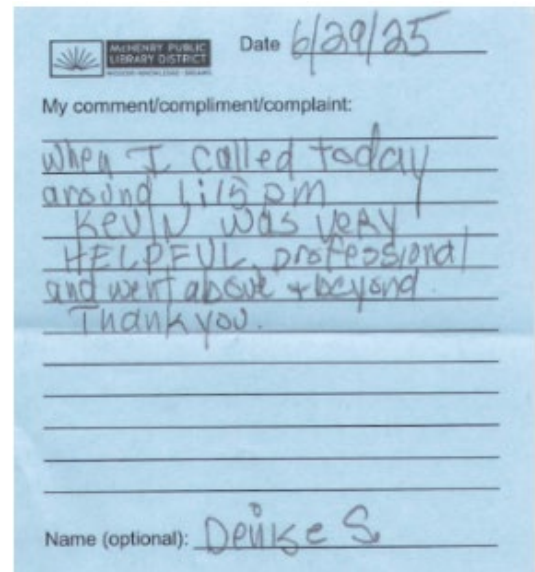 McHENRY PUBLIC
LIBRARY DISTRICT
Date 6/29/25
My comment/compliment/complaint:
When I called today
around 1:15 pm
KEVIN was very
HELPFUL, professional
and went above + beyond.
Thank you.
Name (optional): Denise S.